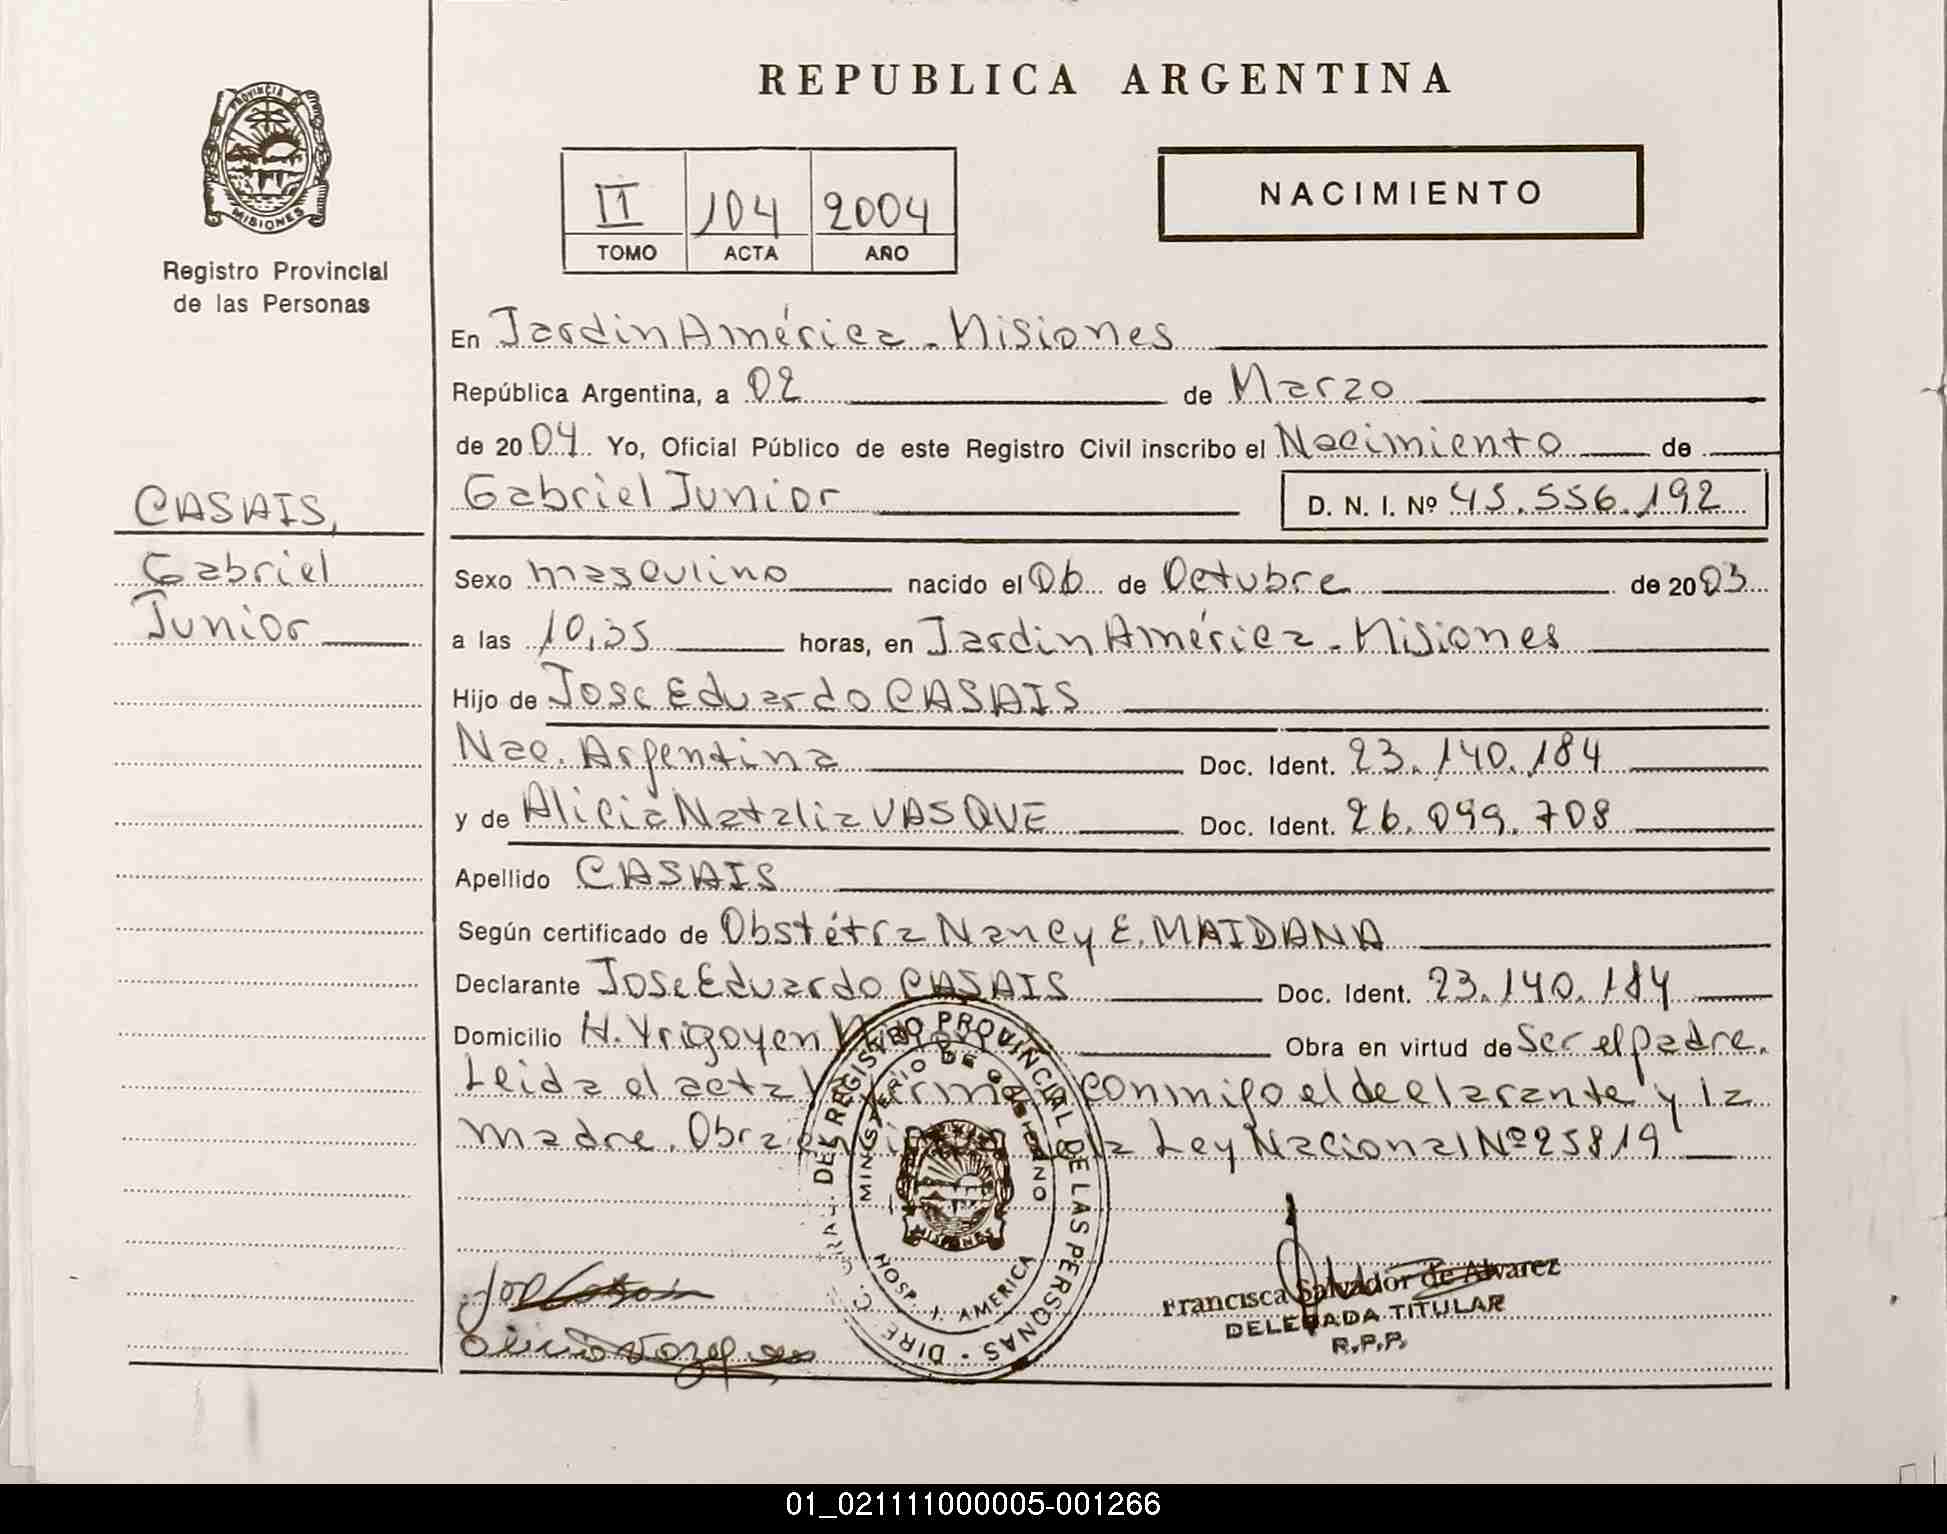 REPUBLICA ARGENTINA
PROVINCIA DE MISIONES
Registro Provincial
de las Personas
II 104 2004
TOMO ACTA AÑO
NACIMIENTO
CASAIS,
Gabriel
Junior
En Jardin América - Misiones
República Argentina, a 02 de Marzo
de 2004 Yo, Oficial Público de este Registro Civil inscribo el Nacimiento de
Gabriel Junior D. N. I. Nº 45.556.192
Sexo masculino nacido el 06 de Octubre de 2003
a las 10,35 horas, en Jardin América - Misiones
Hijo de Jose Eduardo CASAIS
Nac. Argentina Doc. Ident. 23.140.184
y de Alicia Natalia VASQUE Doc. Ident. 26.099.708
Apellido CASAIS
Según certificado de Obstétra Nancy E. MAIDANA
Declarante Jose Eduardo CASAIS Doc. Ident. 23.140.184
Domicilio H. Yrigoyen Obra en virtud de Ser el padre.
Leida el acta conmigo el declarante y la
madre. Obra la Ley Nacional Nº 25819
DEL REGISTRO PROVINCIAL DE LAS PERSONAS
MINISTERIO DE GOBIERNO
MISIONES
HOSP. J. AMERICA
Francisca Salvador de Alvarez
DELEGADA TITULAR
R.P.P.
01_021111000005-001266